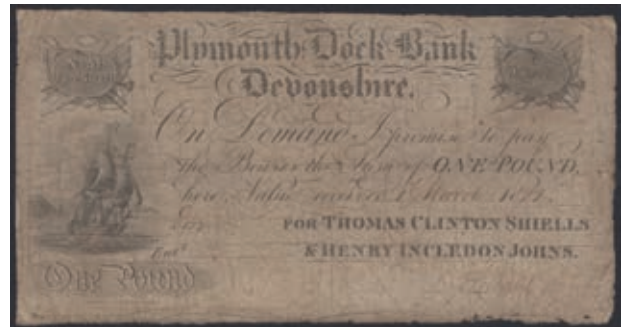 Plymouth Dock Bank
Devonshire.
On Demand I promise to pay
the Bearer the Sum of ONE POUND,
here, Value received 1 March
FOR THOMAS CLINTON SHIELLS
Ent.d
& HENRY INCLEDON JOHNS.
One Pound